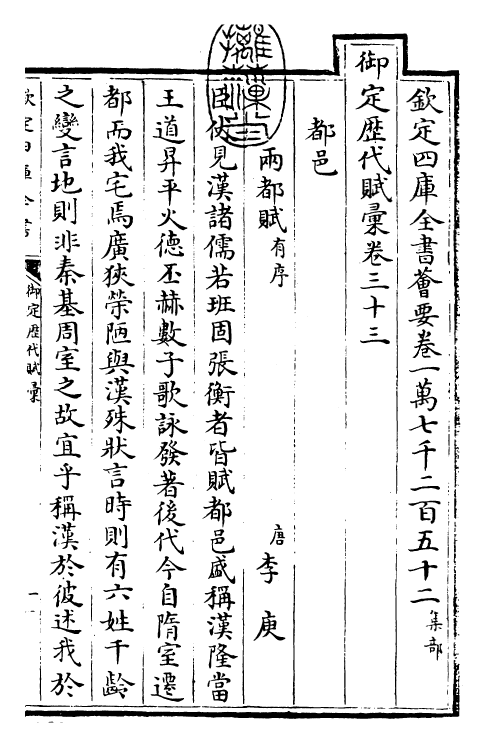 欽定四庫全書薈要卷一萬七千二百五十二 集部
御定歴代賦彚卷三十三
都邑
兩都賦 有序 唐 李庚
臣伏見漢諸儒若班固張衡者皆賦都邑盛稱漢隆當
王道昇平火德丕赫數子歌詠發著後代今自隋室遷
都而我宅焉廣狹榮陋與漢殊狀言時則有六姓千齡
之變言地則非秦基周室之故宜乎稱漢於彼述我於
欽定四庫全書
御定歴代賦彚
一